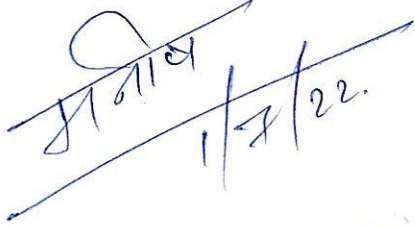 मनीष
1/7/22.